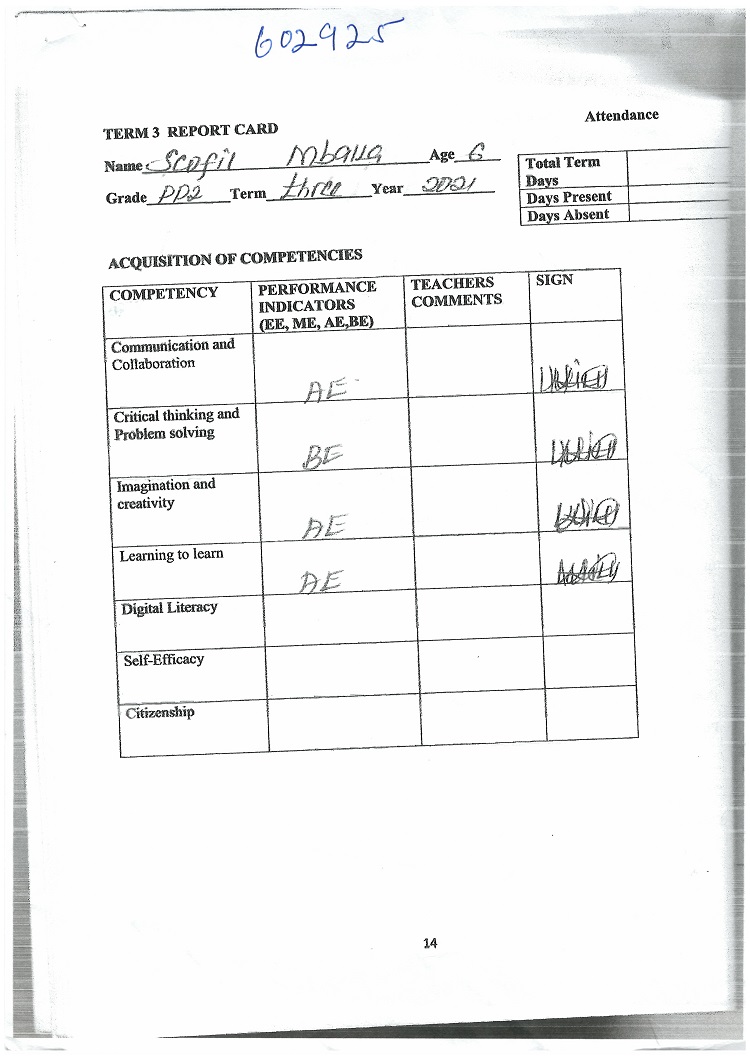 602925
Attendance
TERM 3 REPORT CARD
Name Scofil Age 6
Grade PP2 Term three Year 2021
Total Term
Days
Days Present
Days Absent
ACQUISITION OF COMPETENCIES
COMPETENCY PERFORMANCE INDICATORS (EE, ME, AE,BE) TEACHERS COMMENTS SIGN
Communication and
Collaboration
AE
Critical thinking and
Problem solving
BE
Imagination and
creativity
AE
Learning to learn
AE
Digital Literacy
Self-Efficacy
Citizenship
14